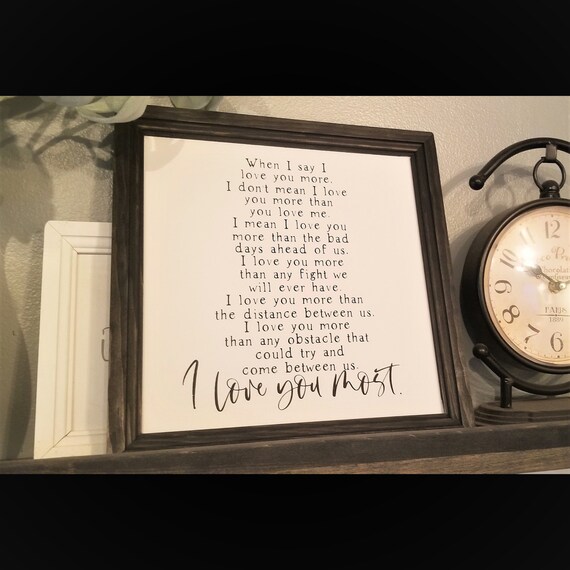 When I say I
love you more.
I dont mean I love
you more than
you love me.
I mean I love you
more than the bad
days ahead of us.
I love you more
than any fight we
will ever have.
I love you more than
the distance between us.
I love you more
than any obstacle that
could try and
come between us.
I love you most.
12
11
10
9
8
7
6
PARIS